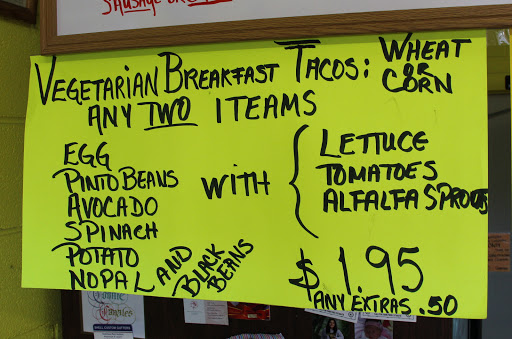 SAUSAGE OR
VEGETARIAN BREAKFAST TACOS: WHEAT OR CORN
ANY TWO ITEAMS
EGG
PINTO BEANS
AVOCADO
SPINACH
POTATO
NOPAL AND BLACK BEANS
WITH
LETTUCE
TOMATOES
ALFALFA SPROUTS
$1.95
ANY EXTRAS .50